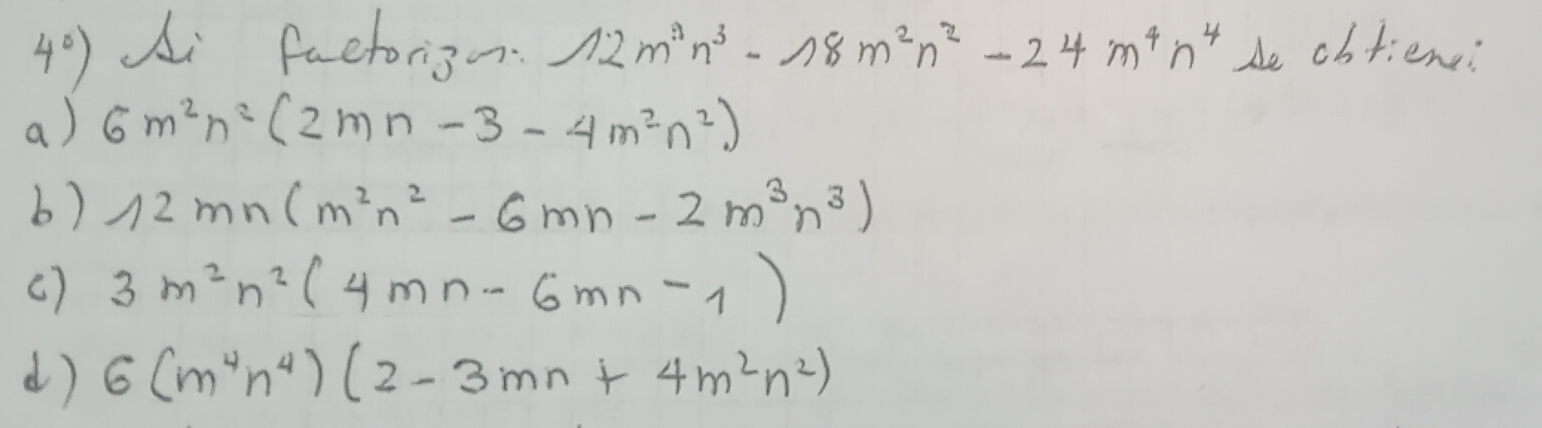 4º) Si factorizan: 12m³n³ - 18m²n² - 24m⁴n⁴ se obtiene:
a) 6m²n²(2mn - 3 - 4m²n²)
b) 12mn(m²n² - 6mn - 2m³n³)
c) 3m²n²(4mn - 6mn - 1)
d) 6(m⁴n⁴)(2 - 3mn + 4m²n²)